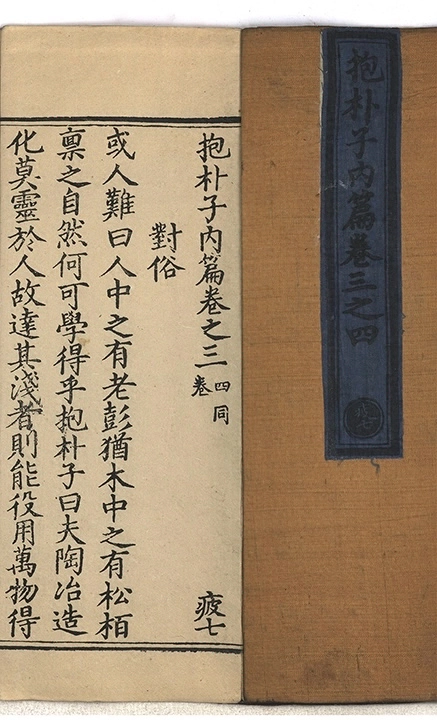 抱朴子内篇卷三之四
抱朴子内篇卷之三 四同卷 疲七
對俗
或人難曰人中之有老彭猶木中之有松栢
稟之自然何可學得乎抱朴子曰夫陶冶造
化莫靈於人故達其淺者則能役用萬物得